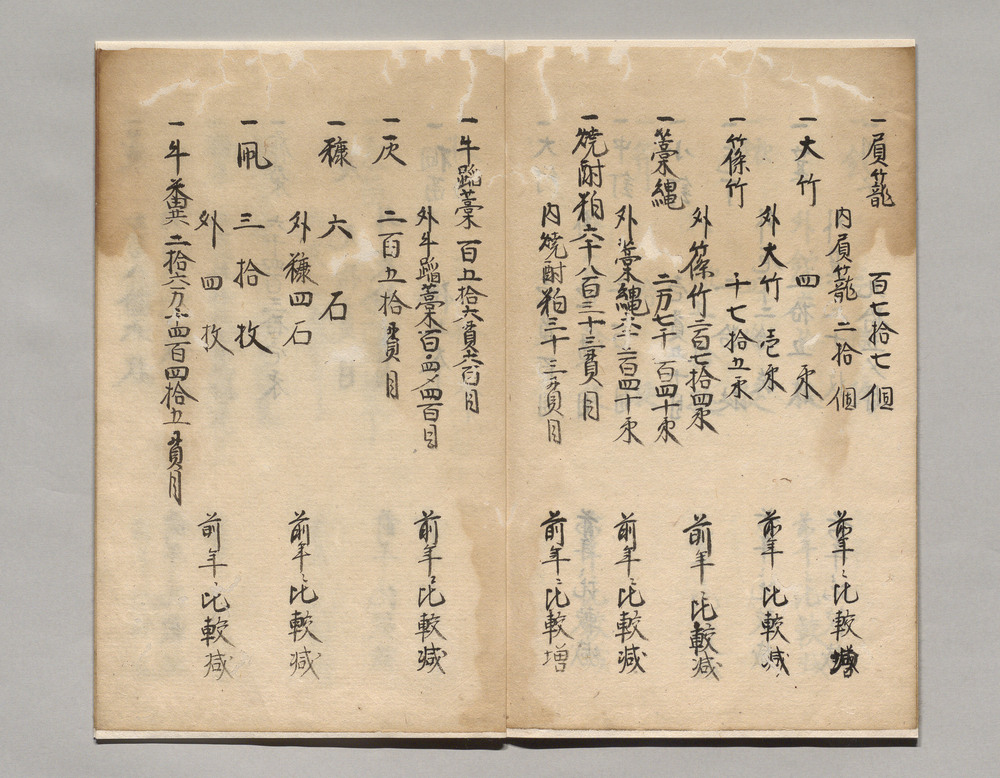 一 肩籠 百七拾七個
内肩籠 二拾個 前年ニ比較増
一 大竹 四束
外大竹 壱束 前年ニ比較減
一 篠竹 千七拾五束
外篠竹 百七拾四束 前年ニ比較減
一 藁縄 二万七千百四十束
外藁縄 二百四十束 前年ニ比較減
一 焼酎粕 六千八百三十三貫目
内焼酎粕 三十三貫目 前年ニ比較増
一 牛踏藁 百五拾六貫六百目
外牛踏藁 四百目 前年ニ比較減
一 灰 二百五拾貫目
一 糠 六石
外糠四石 前年ニ比較減
一 凧 三拾枚
外 四枚 前年ニ比較減
一 牛糞 二拾六万 百四拾五貫目